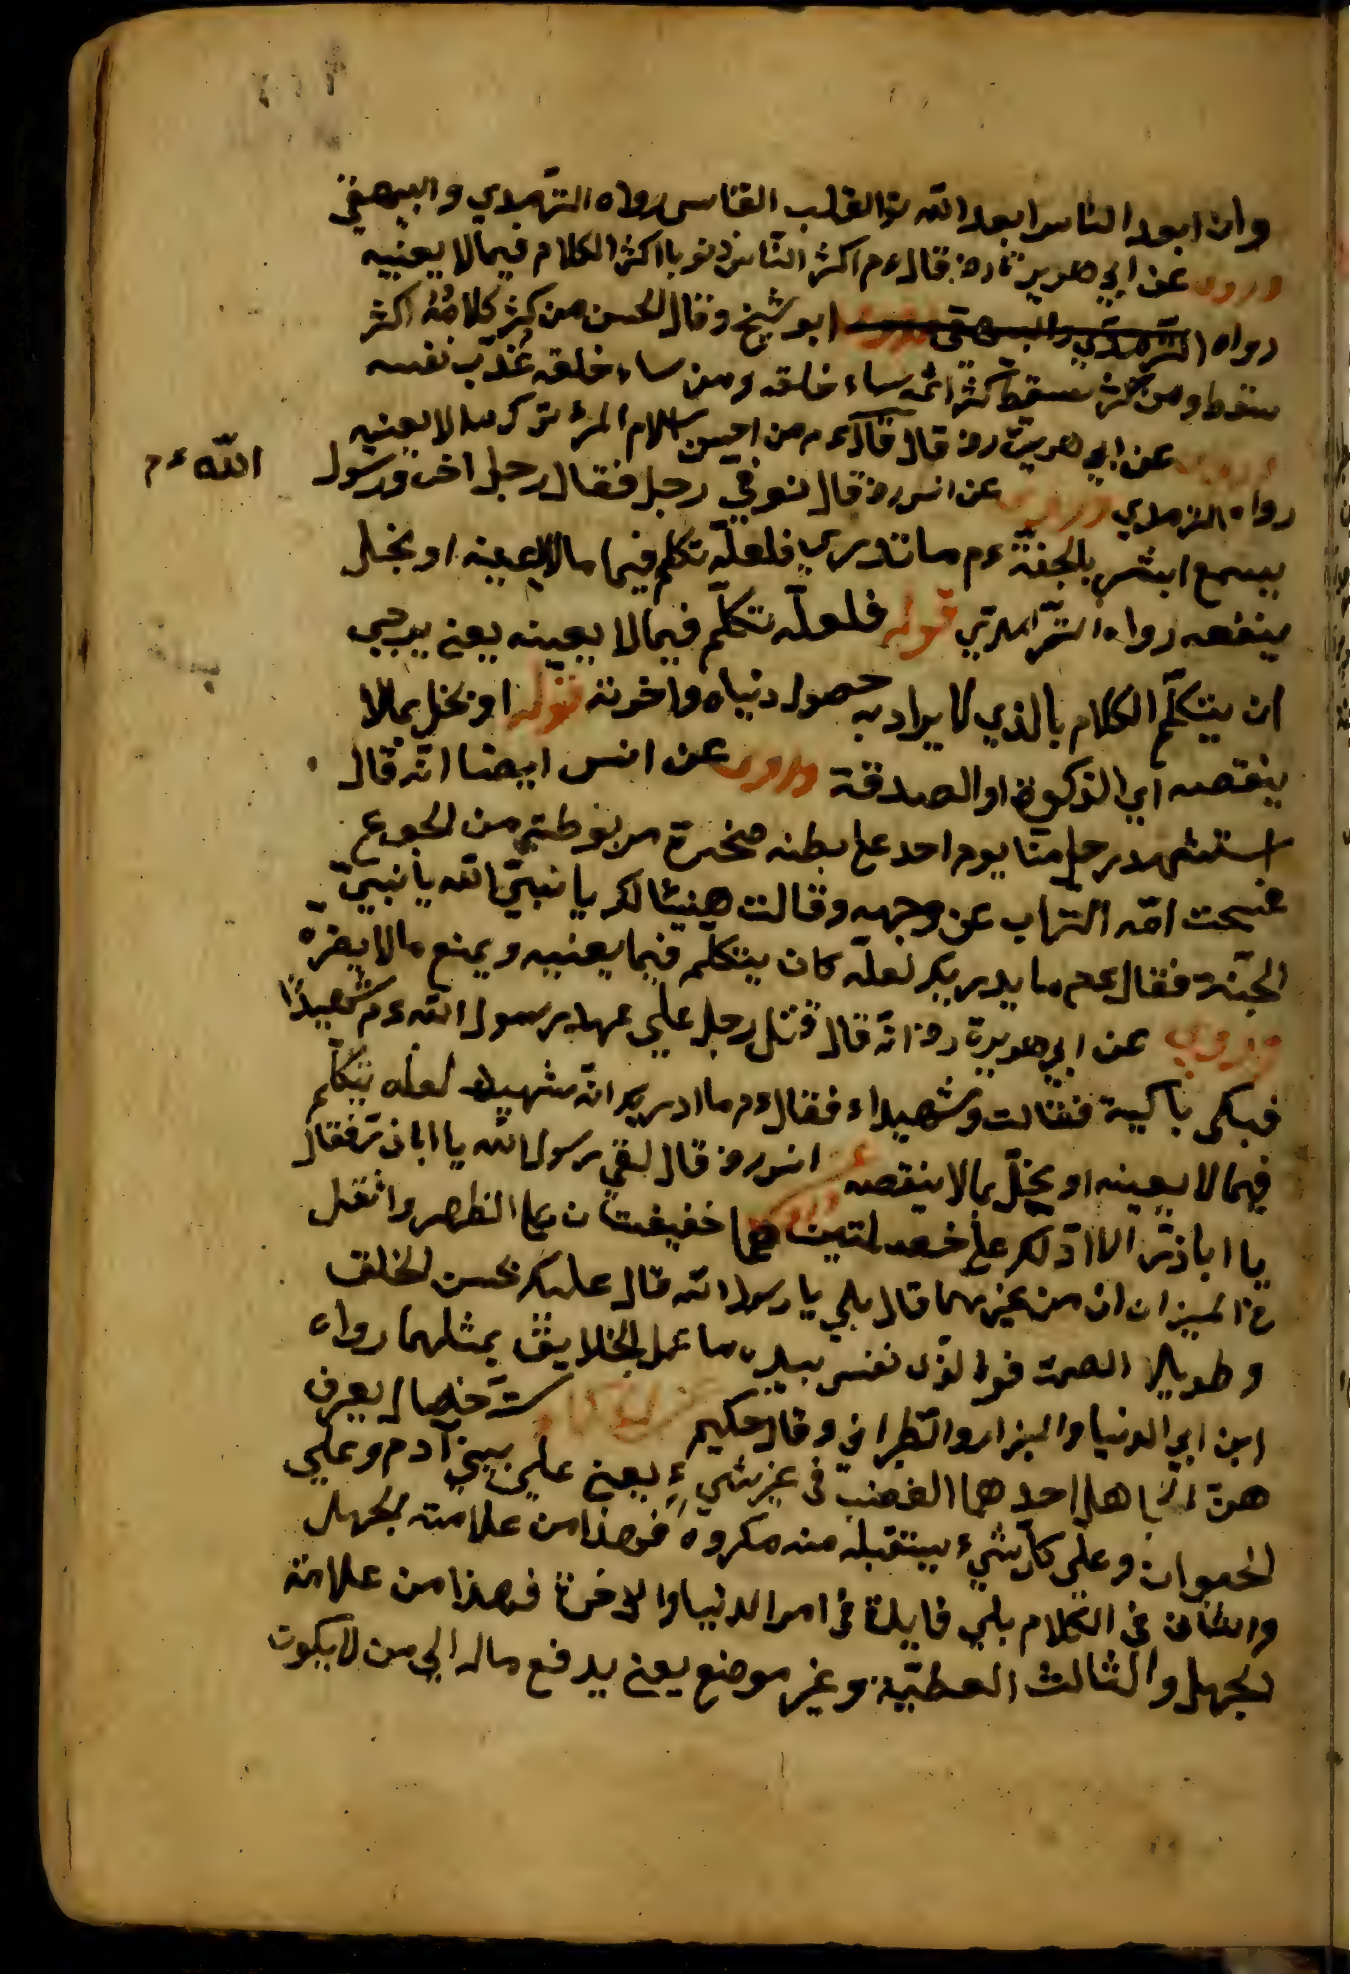 وان ابعد الناس ابعد الله تو القلب القاسى رواه الترمدي والبيهقي
وروى عن ابي هريرة رض قال ءم اكثر الناس ذنوبا اكثر الكلام فيما لا يعنيه
رواه الترمدي والبيهقى وروى ابو شيخ وقال الحسن من كثر كلامُهُ اكثر
سقط ومن كثر سقط كثر اثمه ساء خلقه ومن ساء خلقه عُذّب نفسه
وروى عن ابي هريرة رض قال قال ءم من احسن سلام المرء ترك ما لا يعنيه
رواه الترمدي وروى عن انس رض قال توفي رجل فقال رجل اخر ورسول الله ءم
يسمع ابشر بالجنّة ءم ما تدري فلعلّه تكلم فيما ما لا يعينه او بخل
ينقصه رواه الترّامدي قوله فلعلّه تكلّم فيما لا يعينه يعنى يرجي
ان يتكلّم الكلام بالذي لا يراد به حصول دنياه واخرته قوله او بخل بما لا
ينقصه اي الزكوة او الصدقة وروى عن انس ايضا انّه قال
استشهد رجل منّا يوم احد على بطنه صخرة مربوطة من الجوع
فمسحت امّه التراب عن وجهه وقالت هنيئا لك يا نبيّ الله يا نبيّ
الجنّة فقال ءم ما يدريك لعلّه كان يتكلّم فيما يعنيه ويمنع مالا يضرّه
وروي عن ابي هريرة رض انّه قال قتل رجل علي عهد رسول الله ءم شهيدًا
فبكى باكية فقالت وشهيداه فقال ءم ما ادريك انّه شهيد لعله يتكلّم
فيما لا يعينه او يبخلّ بما لا ينقصه وروى عن انس رض قال لقي رسول الله يا اباذرّ فقال
يا اباذرّ الا ادّلك على خصلتين هما خفيفتان على الظهر واثقل
في الميزان ان من غيرهما قال بلي يا رسول الله قال عليك بحسن الخلق
وطويل الصمت فوالذى نفسى بيده ما عمل الخلايق بمثلهما رواه
ابن ابي الدنيا والبزار والطبراني وقال حكيم ستّ خصال يعرف
هنّ الجاهل احدهما الغضب فى غير شيءٍ يعنى على بني آدم وعلي
الحيوان وعلى كل شيء يستقبله منه مكروه فهذا من علامته الجهل
والثانى فى الكلام بلي فايدة فى امر الدنيا والاخرة فهذا من علامة
الجهل والثالث العطيّة وغير موضع يعنى يدفع ماله الي من لا يكون